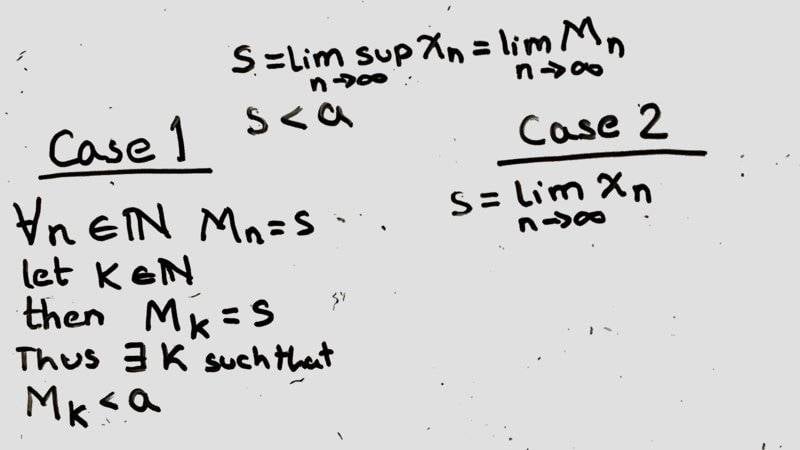 S = lim sup xₙ = lim Mₙ
n→∞ n→∞
s < a
Case 1
∀n ∈ ℕ Mₙ = s
let K ∈ ℕ
then M_K = s
Thus ∃ K such that
M_K < a
Case 2
s = lim xₙ
n→∞